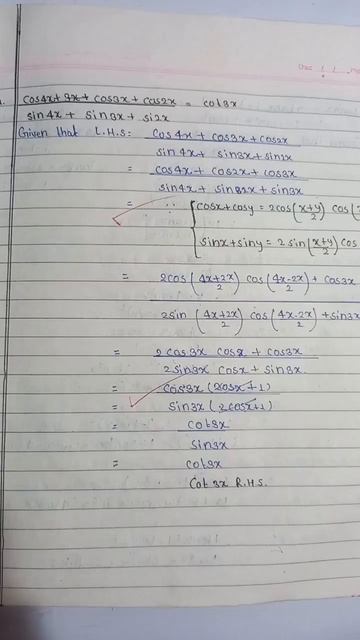 cos4x + 3x + cos3x + cos2x = cot3x
sin4x + sin3x + si2x
Given that L.H.S = cos4x + cos3x + cos2x
sin4x + sin3x + sin2x
= cos4x + cos2x + cos3x
sin4x + sin2x + sin3x
= ∵ { cosx + cosy = 2cos(x+y/2) cos(
sinx + siny = 2 sin(x+y/2) cos
= 2cos(4x+2x/2) cos(4x-2x/2) + cos3x
2sin(4x+2x/2) cos(4x-2x/2) + sin3x
= 2 cos3x cosx + cos3x
2 sin3x cosx + sin3x
= cos3x (2cosx + 1)
= sin3x (2cosx+1)
= cos3x
sin3x
= cot3x
Cot 3x R.H.S.